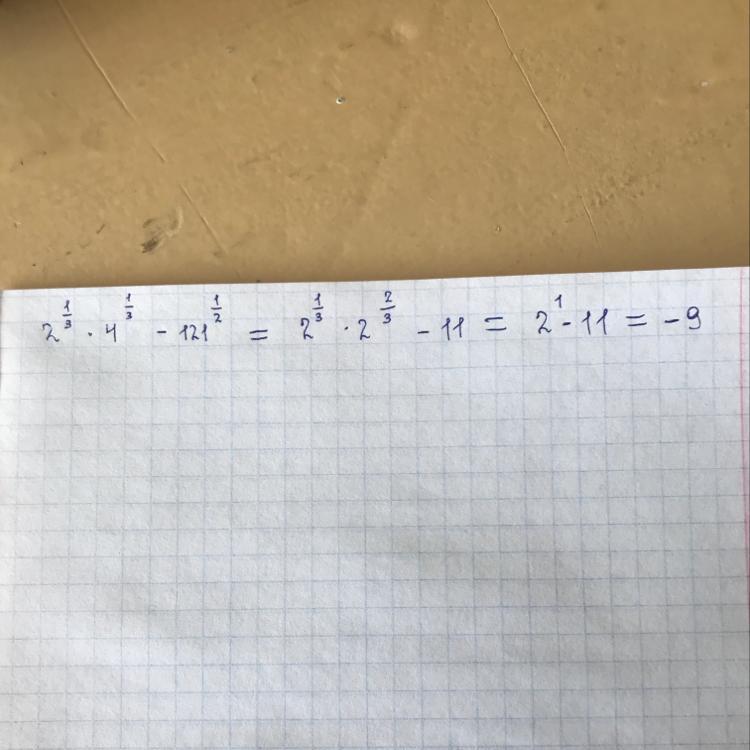 2^{\frac{1}{3}} · 4^{\frac{1}{3}} - 121^{\frac{1}{2}} = 2^{\frac{1}{3}} · 2^{\frac{2}{3}} - 11 = 2^1 - 11 = -9